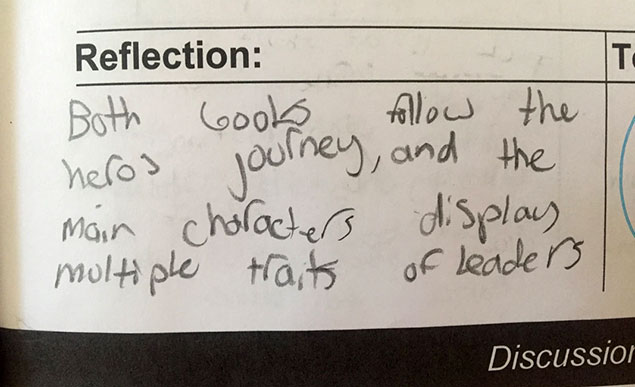 Reflection:
Both books follow the
heros journey, and the
main characters displays
multiple traits of leaders
Discussion